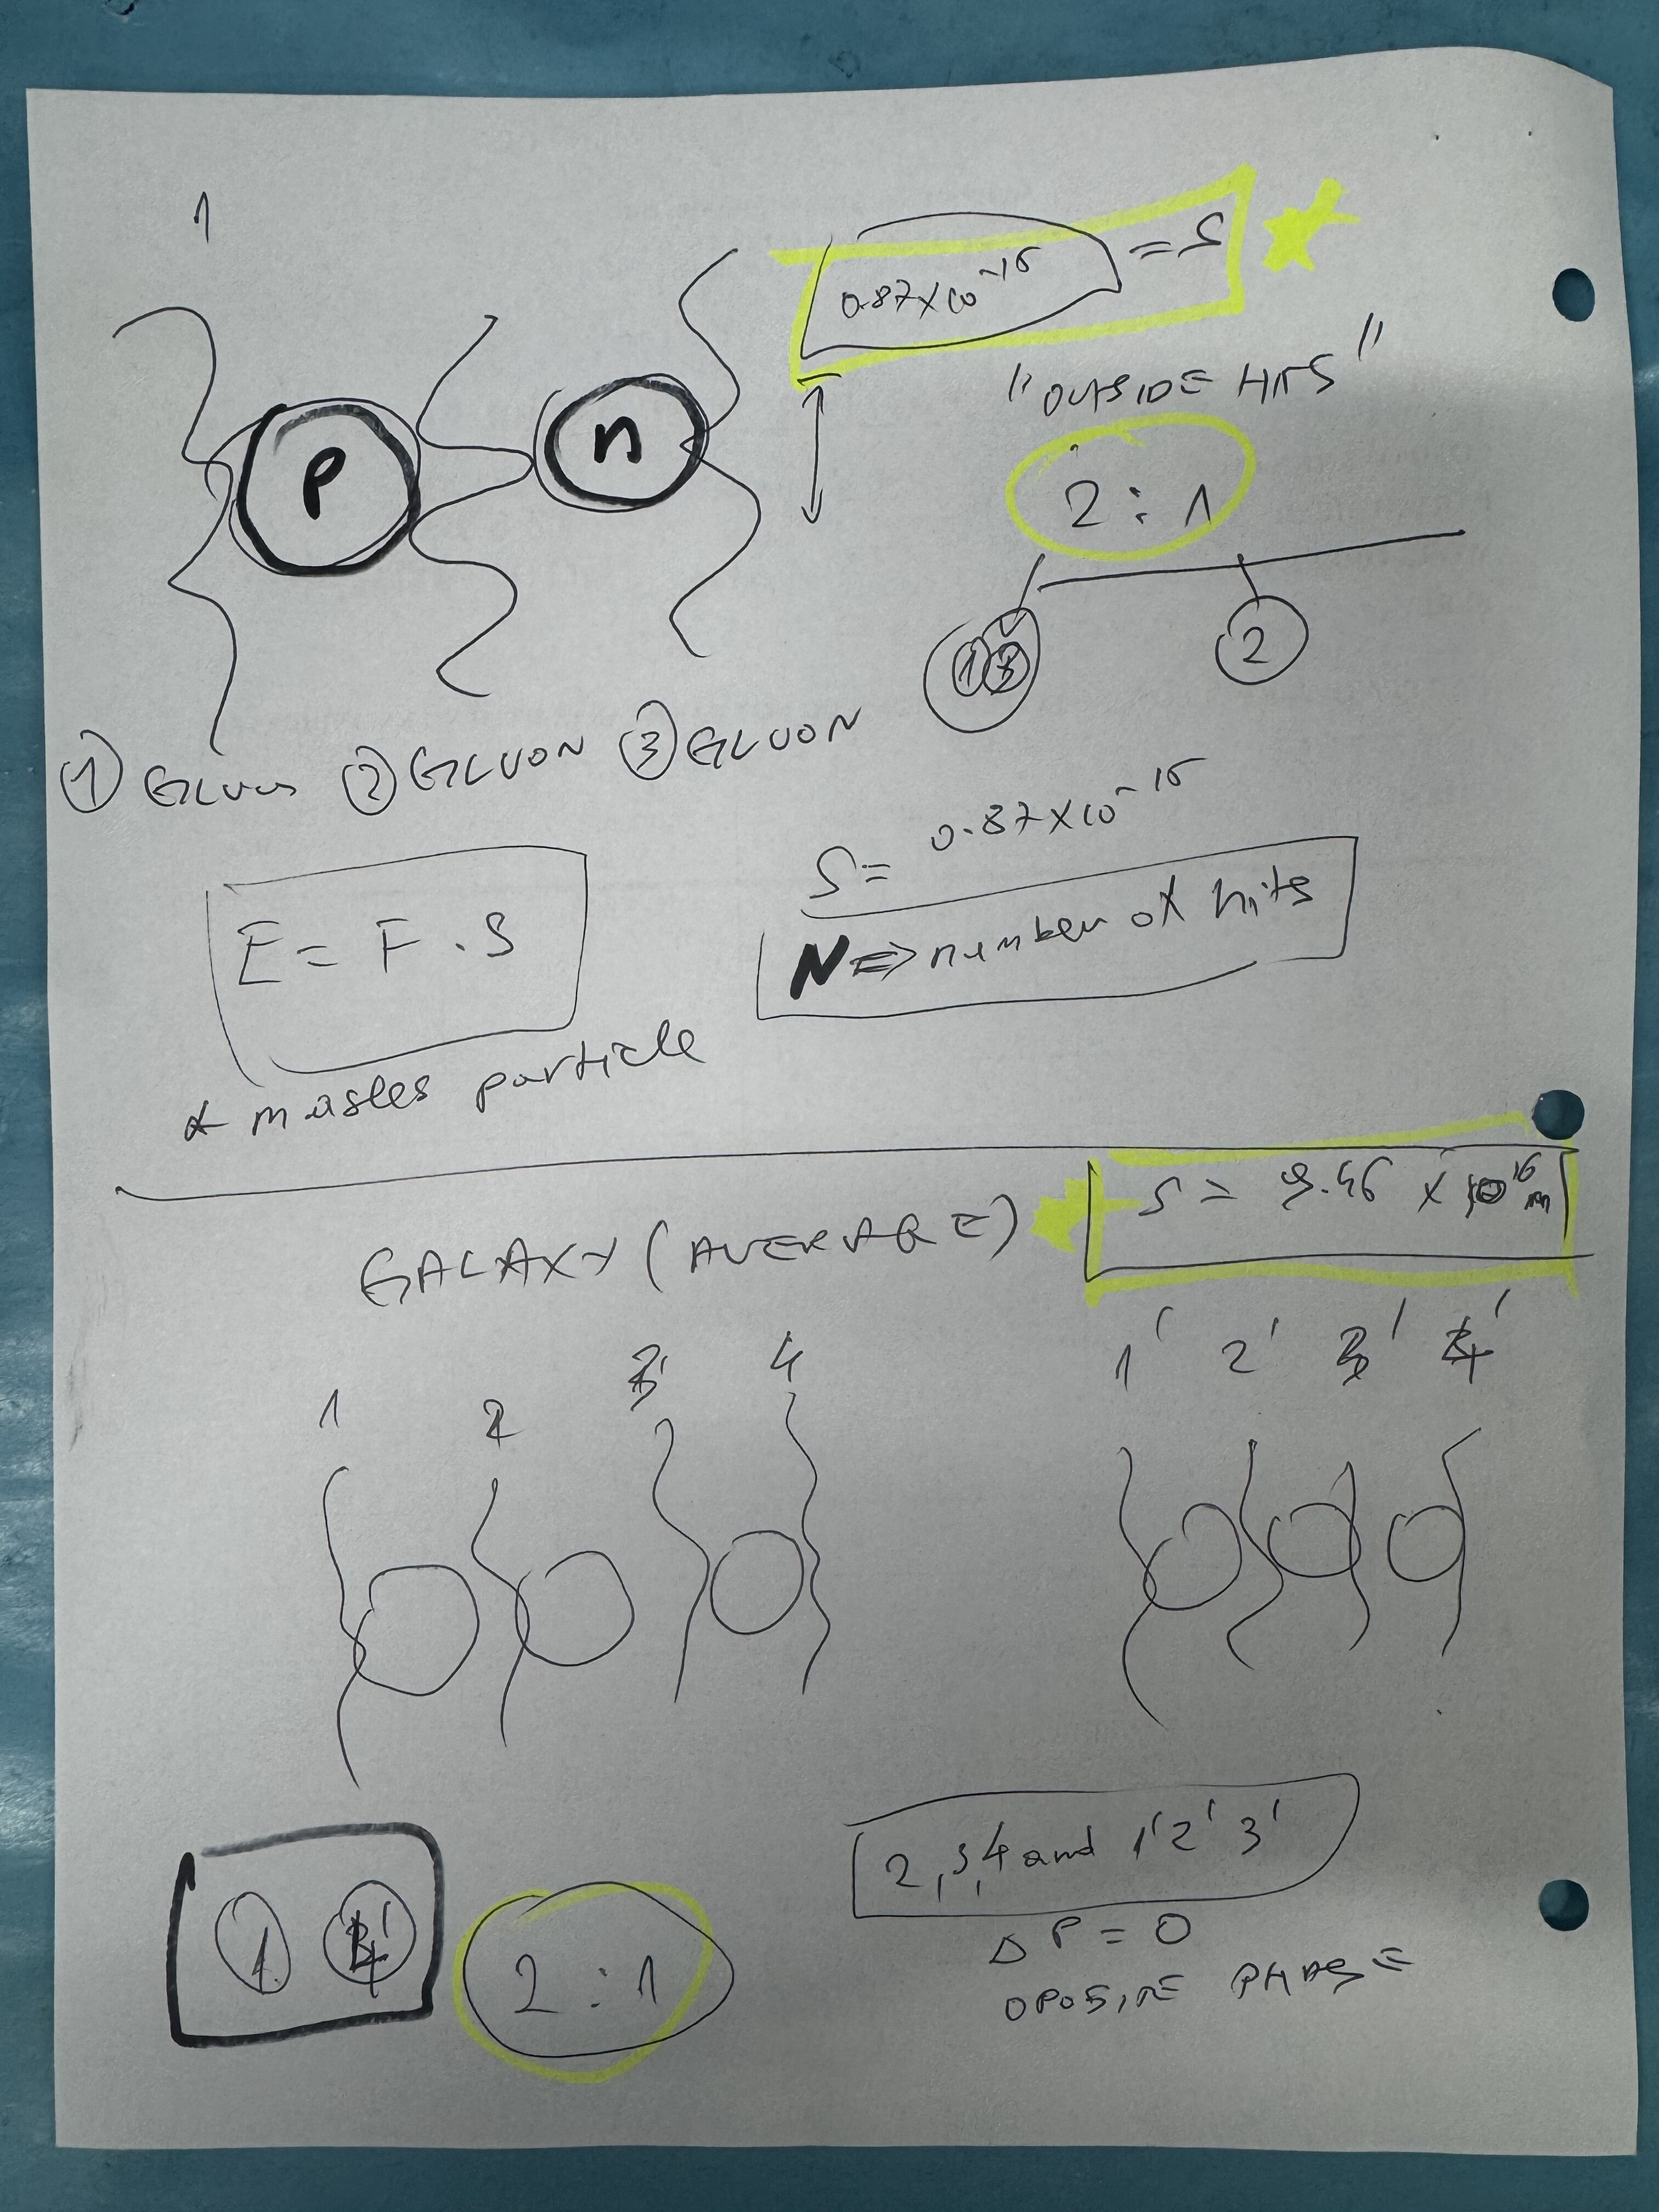 1
0.87x10⁻¹⁵ = S
"OUTSIDE HITS"
P
n
2 : 1
1 3
2
① GLUON ② GLUON ③ GLUON
S = 0.87x10⁻¹⁵
N => number of hits
E = F . S
* masles particle
S = 9.46 x 10¹⁶ m
GALAXY (AVERAGE)
1 2 3 4
1' 2' 3' 4'
2, 3, 4 and 1' 2' 3'
1 4'
2 : 1
Δ P = 0
OPOSITE PHASE